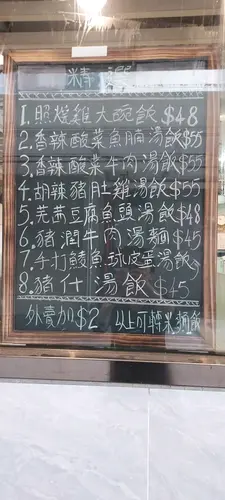 精選
1. 照燒雞大碗飯 $48
2. 香辣酸菜魚腩湯飯 $55
3. 香辣酸菜牛肉湯飯 $55
4. 胡辣豬肚雞湯飯 $55
5. 芫茜豆腐魚頭湯飯 $48
6. 豬潤牛肉湯麵 $45
7. 手打鯪魚球皮蛋湯飯
8. 豬什湯飯 $45
外賣加$2 以上可轉米粉飯